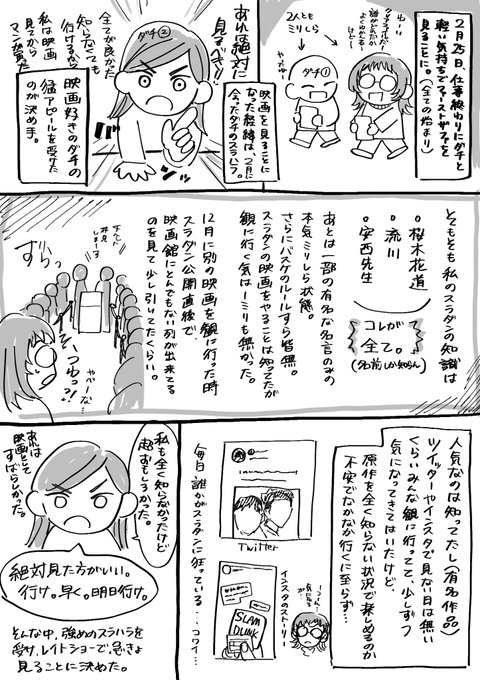 2月25日、仕事終わりにダチと
軽い気持ちでファーストザファを
見ることに。(全ての始まり)
2人とも
ミリしら
ダチ①
けどー
映画を見ることに
なった経緯は、2月に
会ったダチのスラハラ。
あれ絶対に
見るべき!!
ダチ②
全てが良かった
知らなくても
行けるから
私は映画
見てから
マンガ買った
映画好きのダチの
猛アピールを受けた
のが決め手。
そもそも私のスラダンの知識は
・桜木花道
・流川
・安西先生
コレが
全て。
(名前しか知らん)
あとは一部の有名な名言のみの
本気ミリしら状態。
さらにバスケのルールすら皆無。
スラダンの映画をやることは知ってたが
観に行く気は1ミリも無かった。
12月に別の映画を観に行った時
スラダン公開直後で
映画館にとんでもない列が出来てる
のを見て少し引いてたくらい。
ずらっ
そ、そいつゎっ?!
やべーな…
人気なのは知ってたし(有名作品)
ツイッターやインスタで見ない日は無い
くらいみんな観に行ってて、少しずつ
気になってきてはいたけど、
原作を全く知らない状況で楽しめるのか
不安でなかなか行くに至らず…
Twitter
インスタのストーリー
SLAM
DUNK
毎日誰かがスラダンに狂っている…コワイ…
私も全く知らなかったけど
超おもしろかった。
あれは
映画として
すばらしかった。
絶対見た方がいい。
行け。早く。明日行け。
そんな中、強めのスラハラを
受け、レイトショーで急きょ
見ることに決めた。